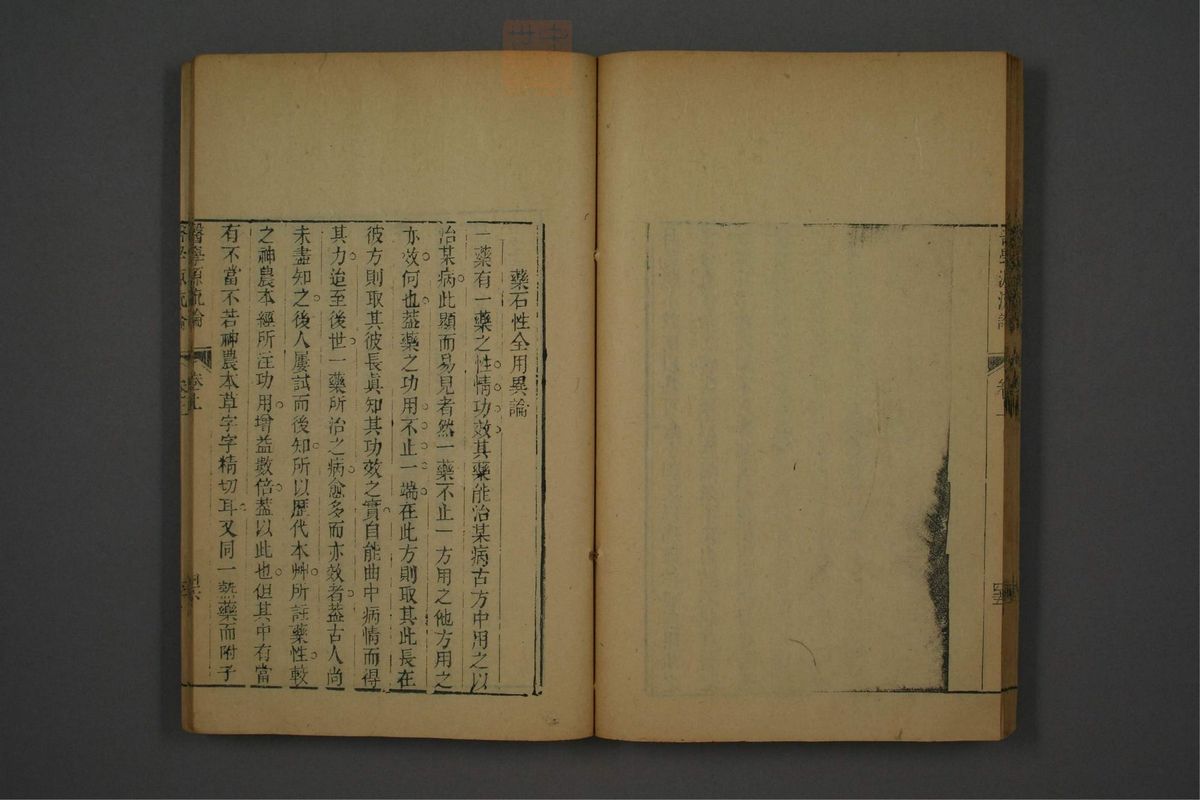 藥石性全用異論
一藥有一藥之性情功效其藥能治某病古方中用之以
治某病此顯而易見者然一藥不止一方用之他方用之
亦效何也葢藥之功用不止一端在此方則取其此長在
彼方則取其彼長眞知其功效之實自能曲中病情而得
其力迨至後世一藥所治之病愈多而亦效者葢古人尚
未盡知之後人屢試而後知所以歷代本艸所註藥性較
之神農本經所注功用增益數倍葢以此也但其中有當
有不當不若神農本草字字精切耳又同一熱藥而附子
醫學源流論
卷上